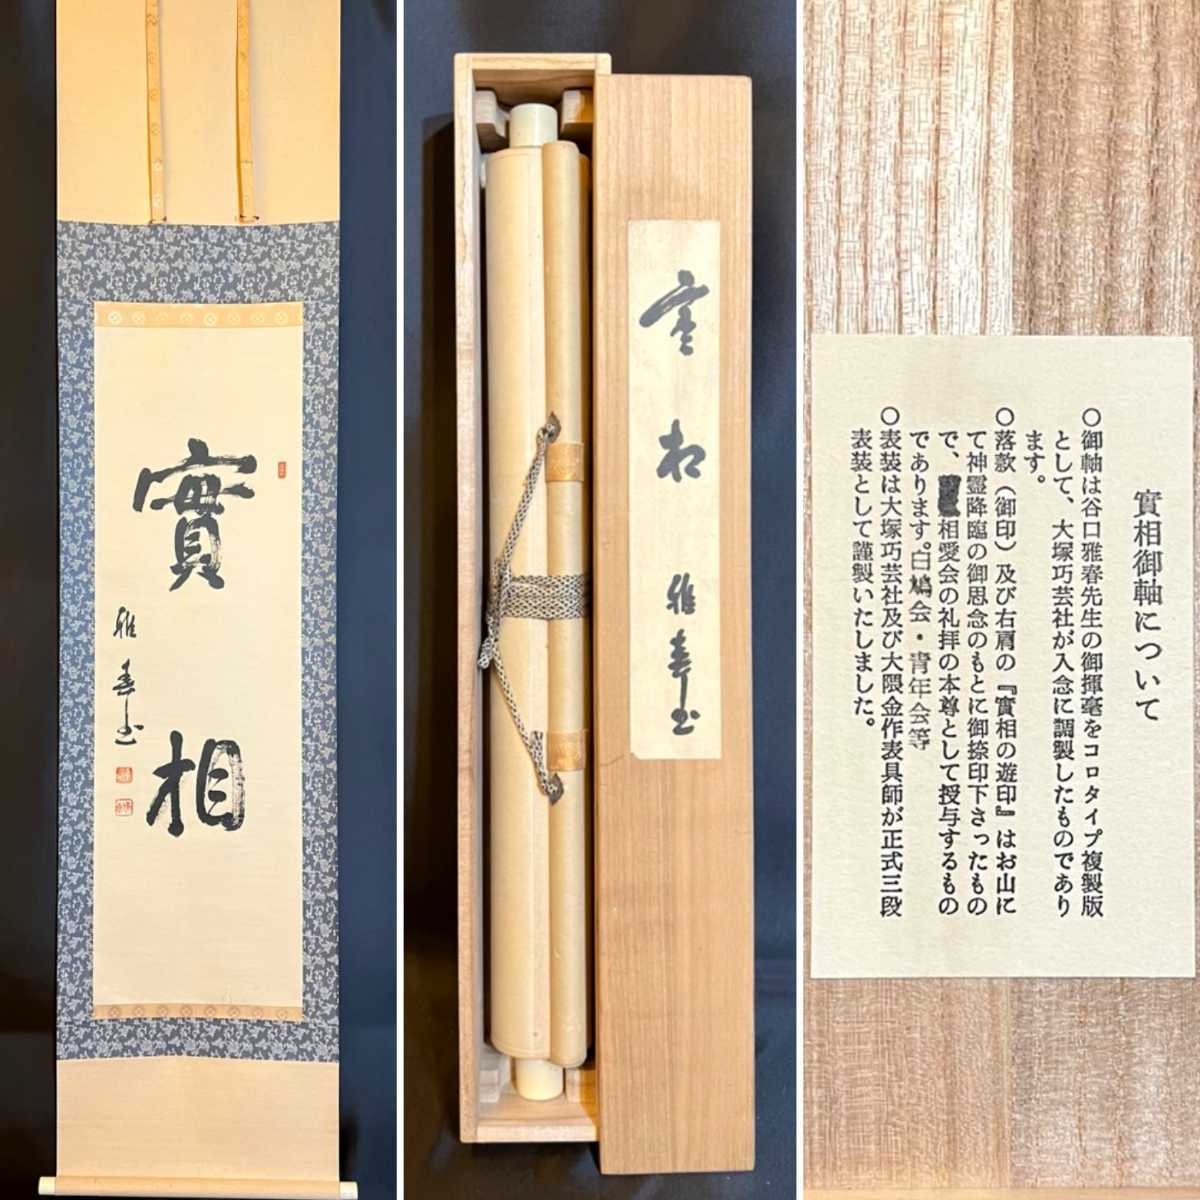 實相
雅春書
實相
雅春書
實相御軸について
○御軸は谷口雅春先生の御揮毫をコロタイプ複製版
として、大塚巧芸社が入念に調製したものであり
ます。
○落款（御印）及び右肩の『實相の遊印』はお山に
て神霊降臨の御思念のもとに御捺印下さったもの
で、相愛会の礼拝の本尊として授与するもの
であります。白鳩会・青年会等
○表装は大塚巧芸社及び大隈金作表具師が正式三段
表装として謹製いたしました。